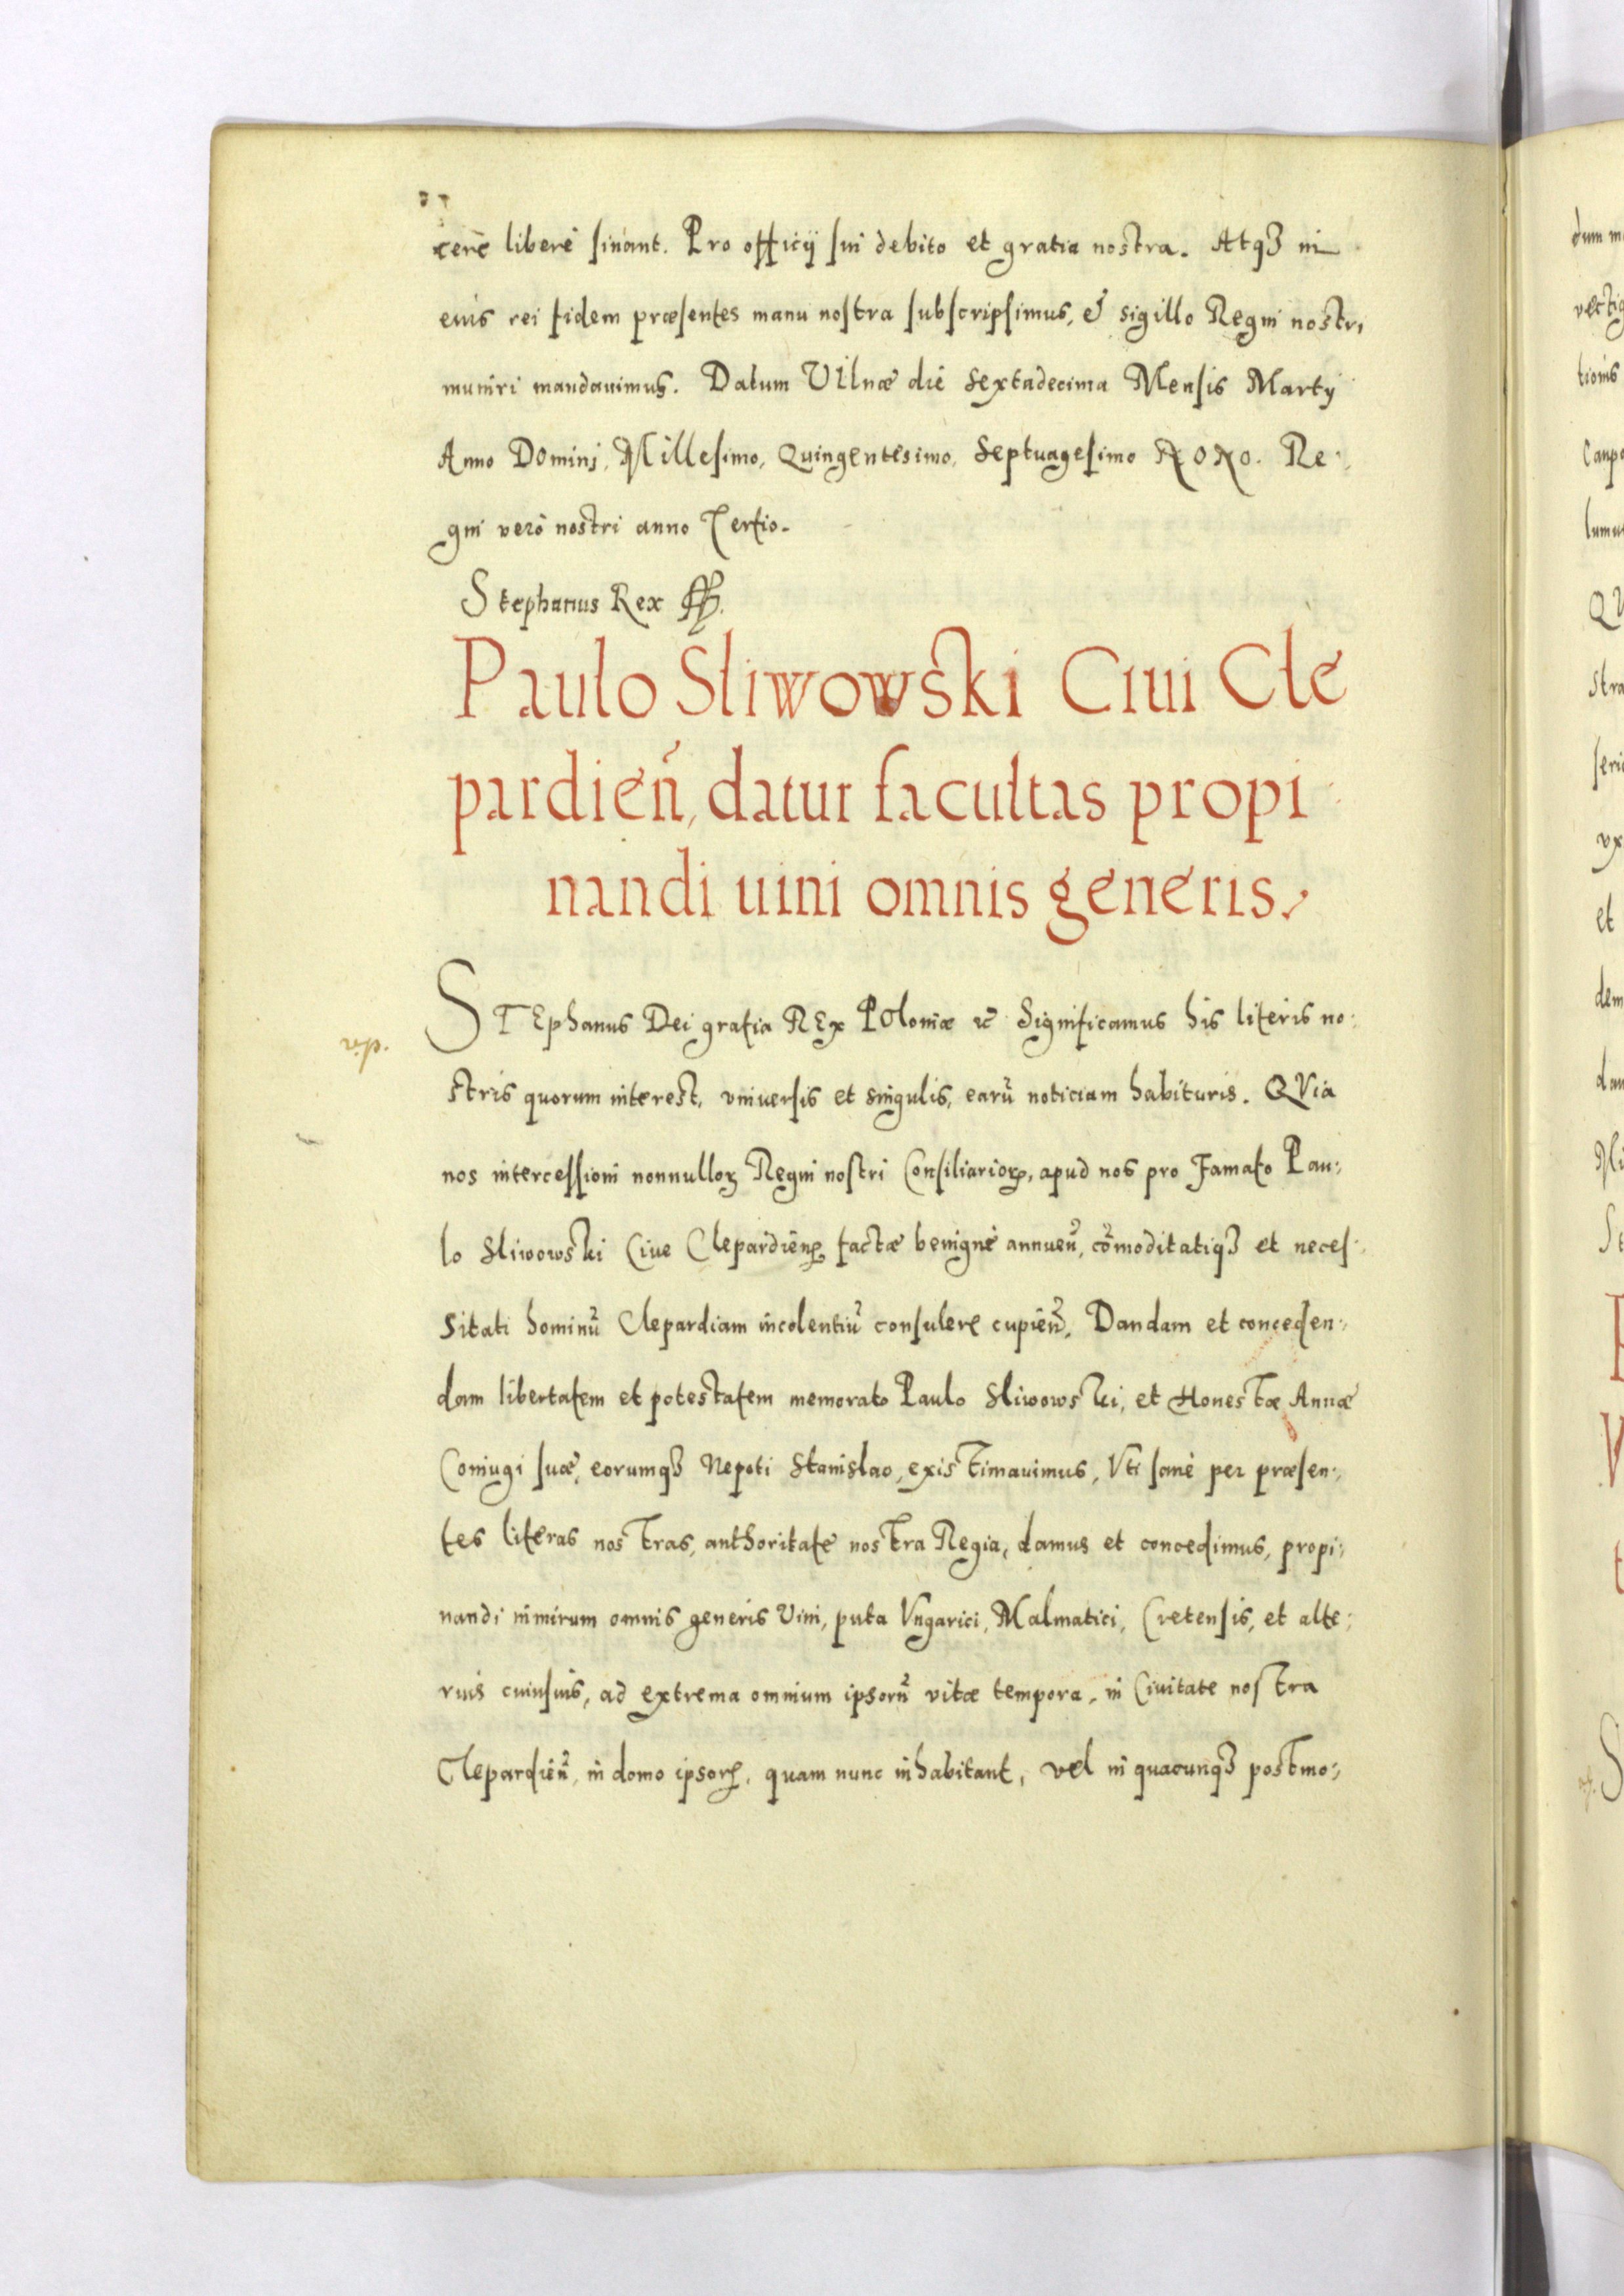 cere libere sinant. Pro officij sui debito et gratia nostra. Atqꝫ in
eius rei fidem præsentes manu nostra subscripsimus, & sigillo Regni nostri
muniri mandauimus. Datum Vilnæ die Sextadecima Mensis Martij
Anno Domini, Millesimo, Quingentesimo, Septuagesimo NONO. Re:
gni vero nostri anno Tertio.
Stephanus Rex
Paulo Sliwowski Ciui Cle
pardien̄, datur facultas propi
nandi uini omnis generis.
STEphanus Dei gratia REx POloniæ &c̄ Significamus his literis no:
stris quorum interest, vniuersis et singulis, earū noticiam habituris. QVia
nos intercessioni nonnulloꝝ Regni nostri Consiliarioꝝ, apud nos pro Famato Pau:
lo Sliwowski Ciue Clepardien̄ factæ benignè annuen̄, cōmoditatiqꝫ et neces:
sitati hominū Clepardiam incolentiū consulere cupien̄. Dandam et conceden:
dam libertatem et potestatem memorato Paulo Sliwowski, et Honestæ Annæ
Coniugi suæ, eorumqꝫ Nepoti Stanislao, existimauimus, Vti sanè per præsen:
tes literas nostras, authoritate nostra Regia, damus et concedimus, propi:
nandi nimirum omnis generis Vini, puta Vngarici, Malmatici, Cretensis, et alte:
rius cuiusuis, ad extrema omnium ipsorū vitæ tempora, in Ciuitate nostra
Clepardien̄, in domo ipsoꝝ, quam nunc inhabitant, vel in quacunqꝫ postmo: